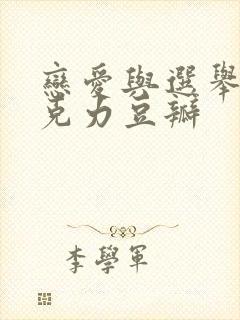 戀愛與選舉
克力豆瓣
李學軍